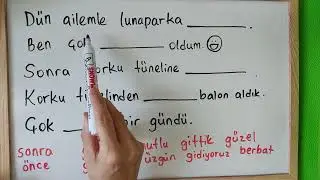 Dün ailemle lunaparka ________.
Ben çok ________ oldum
Sonra korku tüneline ________.
Korku tünelinden ________ balon aldık.
Çok ____ bir gündü.
sonra mutlu gittik güzel
önce üzgün gidiyoruz berbat